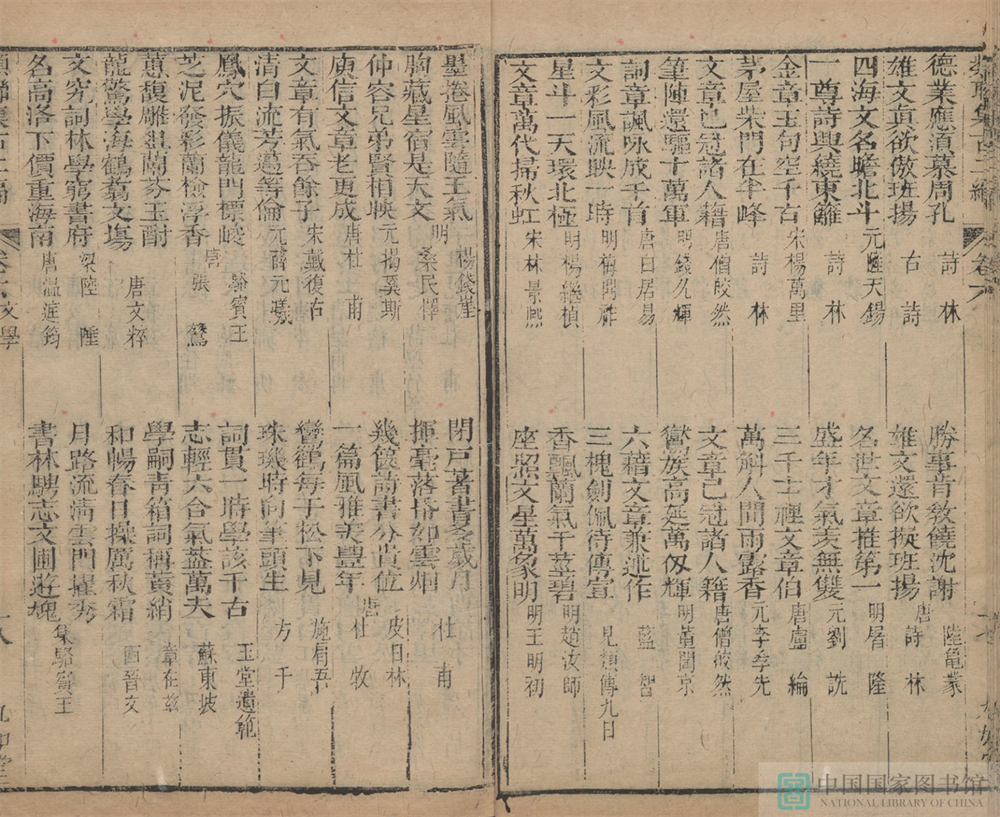 德業應須慕周孔 詩林
勝事昔敎饒沈謝 唐陸龜蒙
雄文眞欲倣班揚 古詩
雄文還欲擬班揚 詩林
四海文名瞻北斗 元陸天錫
名世文章推第一 明屠隆
一尊詩興繞東籬 詩林
盛年才氣羨無雙 元劉詵
金章玉句空千古 宋楊萬里
三千士裡文章伯 唐盧綸
茅屋柴門在半峰 詩林
萬斛人間雨露香 元李孝先
文章已冠諸人籍 唐僧皎然
文章已冠諸人籍 唐僧皎然
筆陣還驅十萬軍 明錢久輝
嶽族高延萬仭輝 明董閬京
詞章諷咏成千首 唐白居易
六藉文章兼述作 藍智
文彩風流映一時 明梅鶚祚
三槐劍佩待傳宣 見類傳九日
星斗一天環北極 明楊繼楨
香飄蘭氣千莖碧 明趙汝師
文章萬代掃秋虹 宋林景熙
座照文星萬象明 明王明初
墨卷風雲隨王氣 楊錢崖
閉戶著書多歲月 杜甫
胸藏星宿是天文 明桑民懌
揮毫落帋如雲烟 杜甫
仲容兄弟賢相映 元揭奚斯
幾篋詩書分貴位 皮日林
庾信文章老更成 唐杜甫
一篇風雅羙豐年 唐杜牧
文章有氣吞餘子 宋戴復古
鸞鶴每于松下見 施肩吾
清白流芳邁等倫 元薩元曦
珠璣時向筆頭生 方干
鳳穴振儀龍門標峻 駱賓王
詞貫一時學該千古 玉堂遺範
芝泥發彩蘭檢浮香 唐張鷟
志輕六合氣蓋萬夫 蘇東坡
蕙馥雕俎蘭芬玉酎
學嗣青箱詞稱黃絹 章在茲
龍驚學海鶴翥文塲 唐文粹
和暢春日操厲秋霜 西晉文
文究詞林學窮書府 梁陸倕
月路流淸雲門擢秀
名高洛下價重海南 唐溫庭筠
書林騁志文圃遊塊 集駱賓王